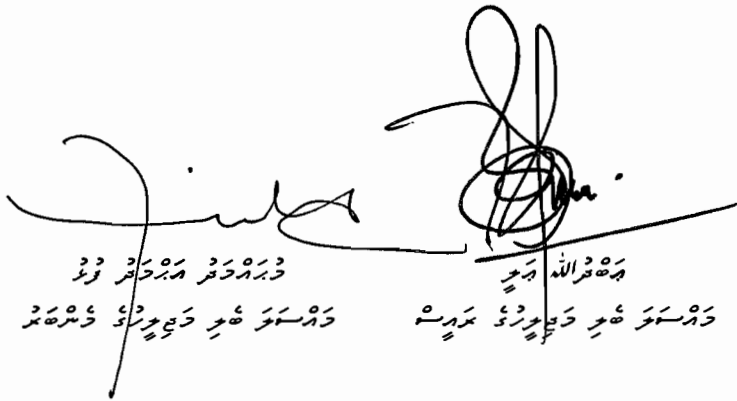 ޢަބްދުﷲ ޢަލީ
މައްސަލަ ބެލި މަޖިލީހުގެ ރައީސް
މުޙައްމަދު އަޙްމަދު ފުޅު
މައްސަލަ ބެލި މަޖިލީހުގެ މެންބަރު